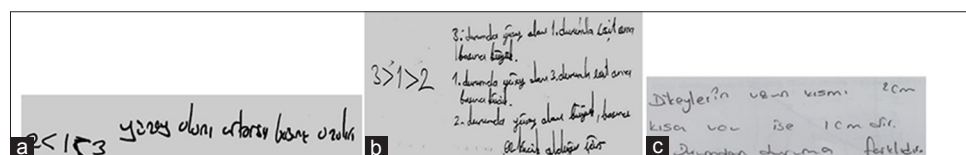 2<1<3 yüzey alanı artarsa basınç azalır
a
3>1>2
3. durumda yüzey alanı 1. durumla eşit ama
basıncı büyük.
1. durumda yüzey alanı 3. durumla eşit ama
basıncı küçük.
2. durumda yüzey alanı büyük, basıncı
en küçük olduğu için
b
Dikeylerin uzun kısmı 2cm
kısa ise 1cm dir.
Durumdan duruma farklıdır.
c